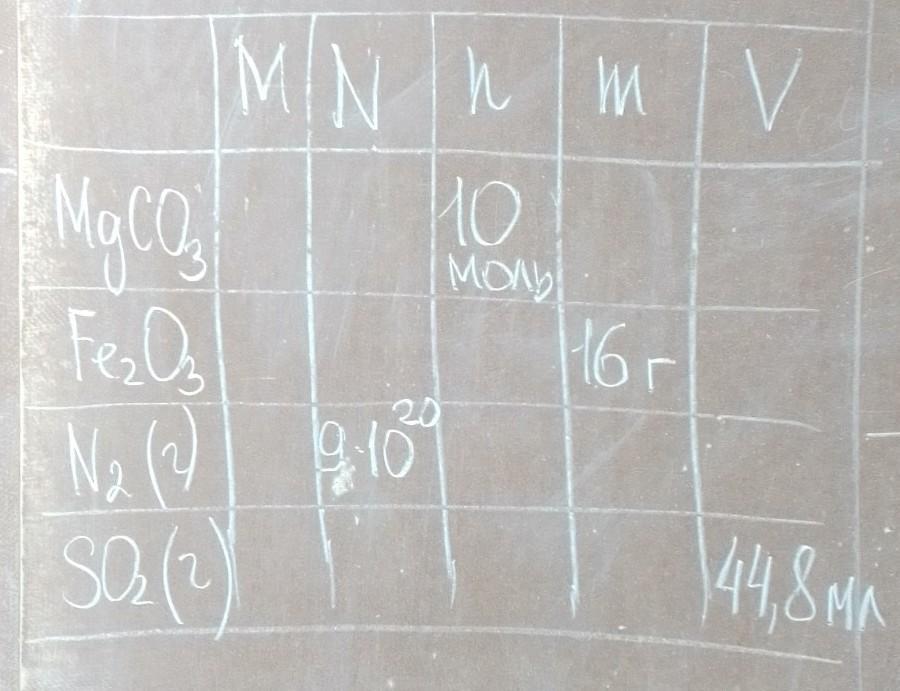 M N n m V
MgCO₃ 10 моль
Fe₂O₃ 16 г
N₂ (г) 9·10²⁰
SO₂ (г) 44,8 мл